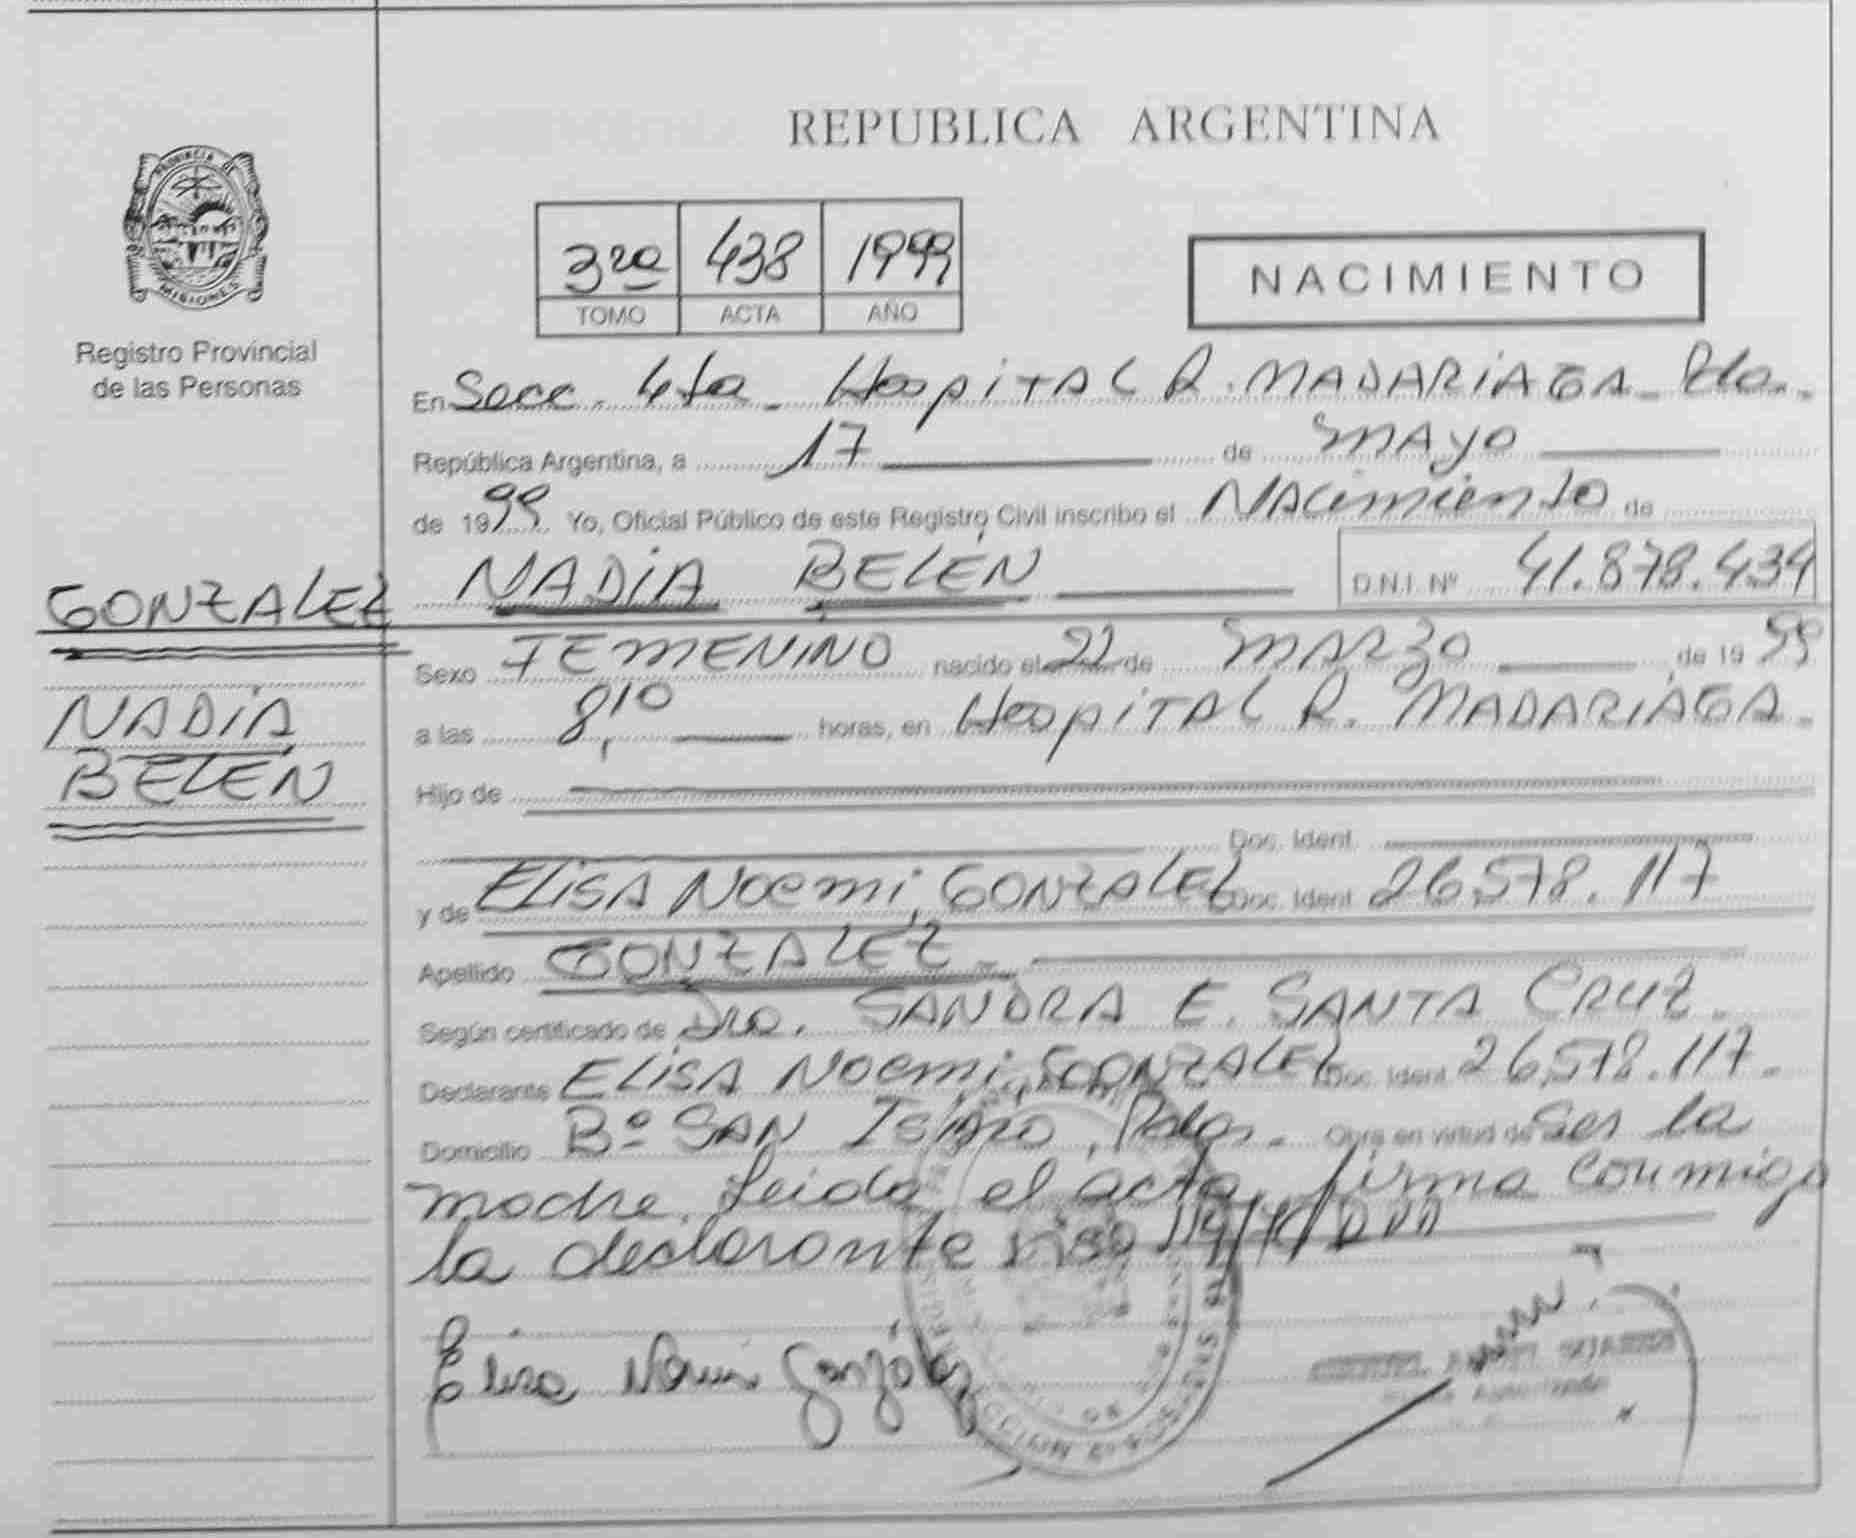 REPUBLICA ARGENTINA
PROVINCIA DE
MISIONES
Registro Provincial
de las Personas
3ra 438 1999
TOMO ACTA AÑO
NACIMIENTO
En Secc. 4ta - Hospital R. MADARIAGA -
República Argentina, a 17 de MAYO
de 1999 Yo, Oficial Público de este Registro Civil inscribo el Nacimiento de
GONZALEZ
NADIA BELÉN D.N.I. Nº 41.878.434
NADIA
BELEN
Sexo FEMENINO nacido el 22 de MARZO de 1999
a las 8,10 horas, en Hospital R. MADARIAGA.
Hijo de
Doc. Ident.
y de ELISA Noemi GONZALEZ Doc. Ident. 26.578.117
Apellido GONZALEZ.-
Según certificado de Dra. SANDRA E. SANTA CRUZ.
Declarante ELISA Noemi GONZALEZ Doc. Ident. 26.578.117.-
Domicilio Bº SAN ISIDRO, Obra en virtud de ser la
madre. Leida el acta, firma conmigo
la declarante
Elisa Noemi González